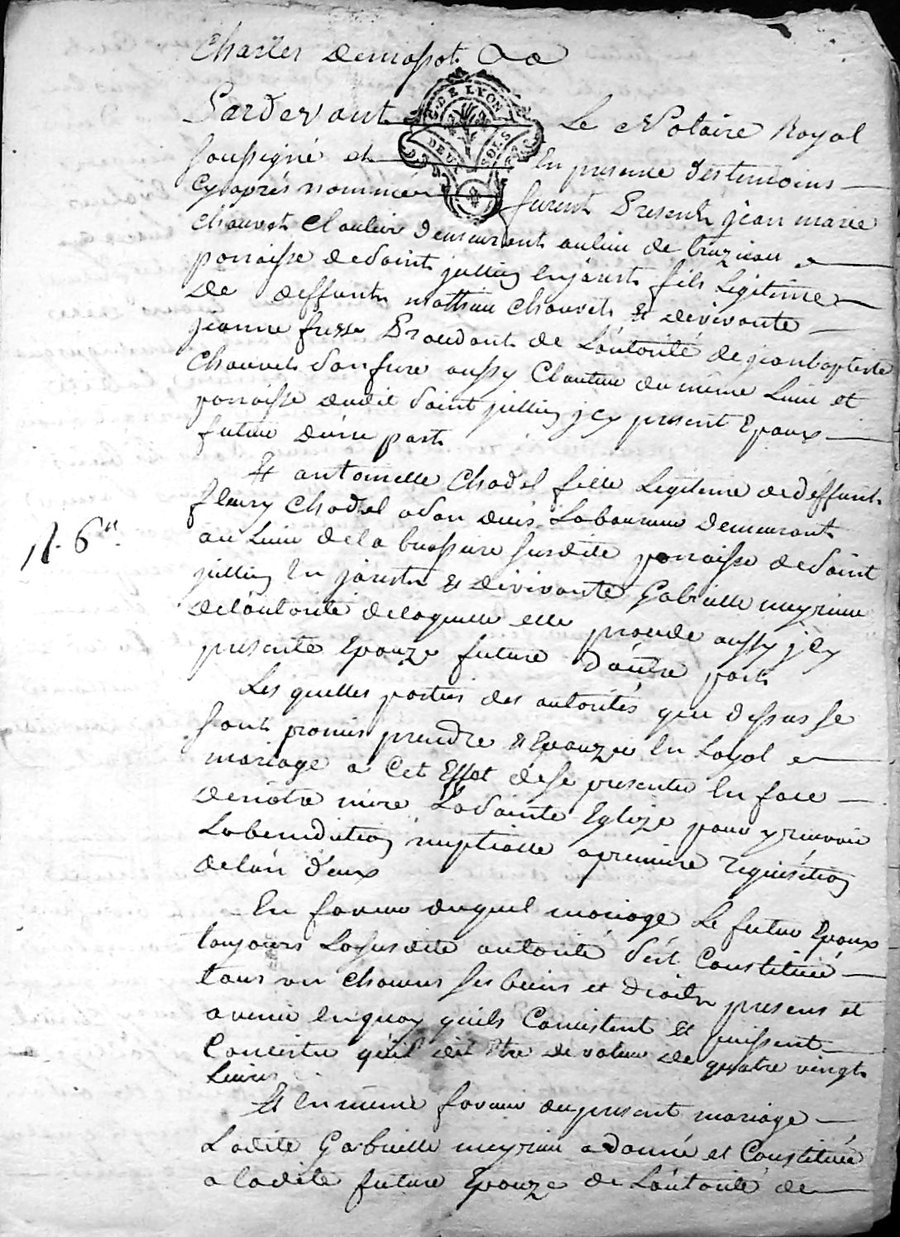 Charles demassot
G. DE LYON
DEUX SOLS
Pardevant Le Notaire Royal
soussigné et En presence des temoins
cy aprés nommée furent Presents jean marie
Chauvet Cloutier demeurant au lieu de
parroisse de Saint jullien en jarest fils Legitime
de deffunt mathieu Chauvet et de vivante
jeanne Procedant de L'autorité de jean baptiste
Chauvet Son frere aussy Cloutier du même Lieu et
parroisse dudit Saint jullien jcy present Epoux
futur d'une part
Et antoinette Chadel fille Legitime de deffunt
fleury Chadel Laboureur demeurant
au Lieu de la susdite parroisse de Saint
jullien En jarest et de vivante Gabrielle meyrieu
de L'autorité de laquelle elle procede aussy jcy
presente Epouze future d'autre part
Les quelles parties des autorités que dessus se
sont promis prendre et Epouzer En Loyal
mariage a Cet Effet de se presenter En face
de notre mere La Sainte Eglize pour y recevoir
La benediction nuptialle a premiere requisition
de l'un d'eux
En faveur duquel mariage Le futur Epoux
toujours La susdite autorité S'est Constitué
tous un chacuns ses biens et droits presens et
avenir En quoy qu'ils Consistent et puissent
Consister qu'il dit être de valeur de quatre vingt
Livres
Et En meme faveur du present mariage
Ladite Gabrielle meyrieu a donné et Constitué
a ladite future Epouze de L'autorité de